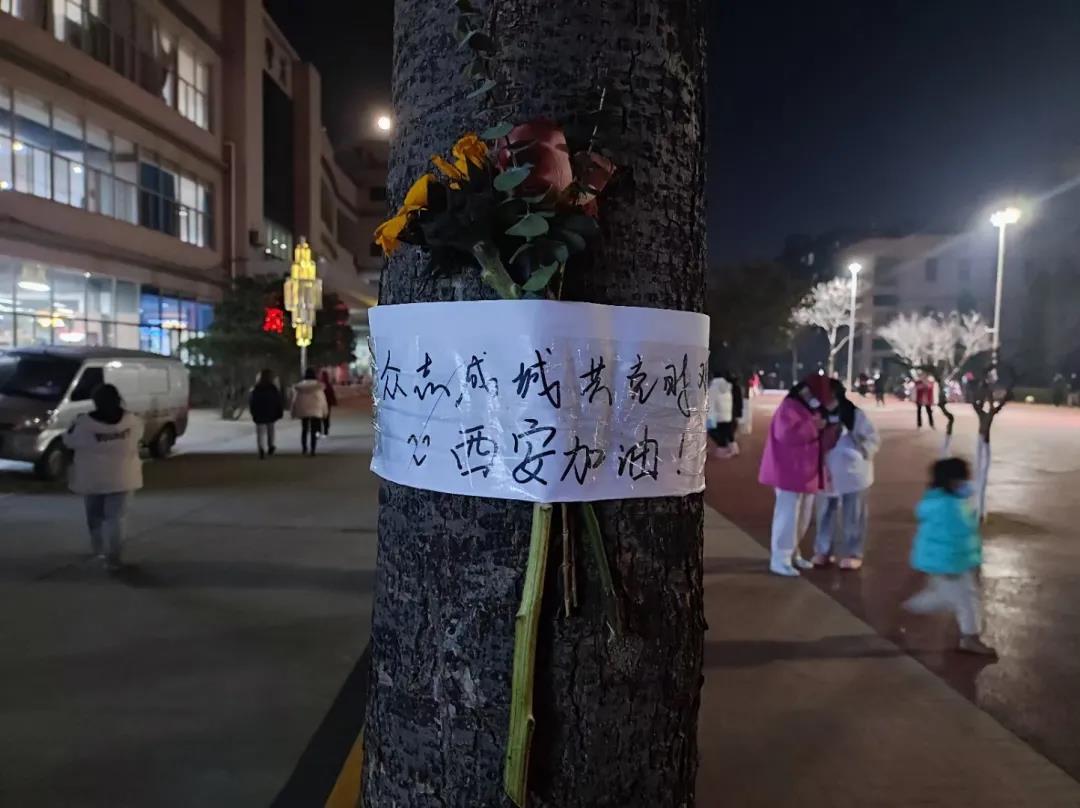 众志成城共克时
西安加油!